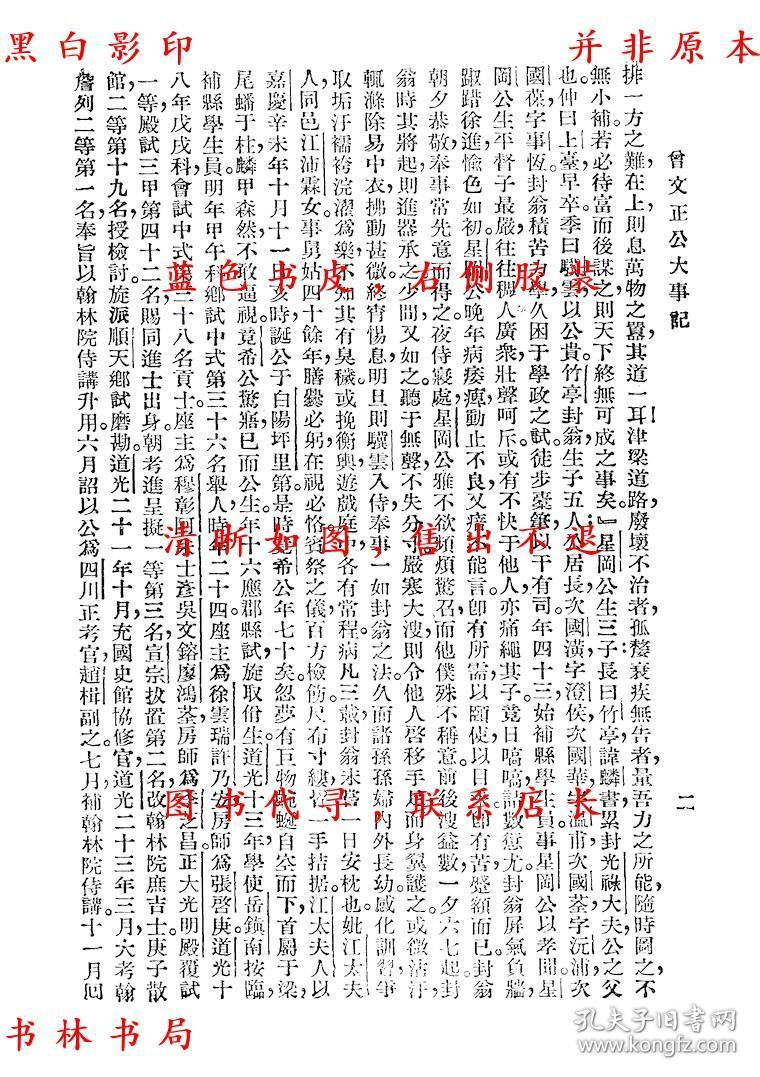 黑白影印
并非原本
曾文正公大事記
二
排一方之難在上則息萬物之囂其道一耳津梁道路廢壞不治者孤嫠衰疾無告者量吾力之所能隨時圖之不
無小補若必待富而後謀之則天下終無可成之事矣』星岡公生三子長曰竹亭諱麟書累封光祿大夫公之父
也仲曰上臺早卒季曰驥雲以公貴竹亭封翁生子五人公居長次國潢字澄侯次國華字溫甫次國荃字沅浦次
國葆字事恆封翁積苦力學久困于學政之試徒步橐筆以干有司年四十三始補縣學生員事星岡公以孝聞星
岡公生平督子最嚴往往稠人廣衆壯聲呵斥或有不快于他人亦痛繩其子竟日嗃嗃詰數愆尤封翁屏氣負牆
踧踖徐進愉色如初星岡公晚年病痿痺動止不良又瘖不能言卽有所需以頤使以目求卽有苦蹙額而已封翁
朝夕恭敬奉事常先意而得之夜侍寢處星岡公雅不欲頻煩驚召而他僕殊不稱意前後溲益數一夕六七起封
翁時其將起則進器承之少間又如之聽于無聲不失分寸嚴寒大溲則令他人啓移手足而身翼護之或微沾汙
輒滌除易中衣拂動甚微終宵惕息明旦則驥雲入侍奉事一如封翁之法久而諸孫孫婦內外長幼感化訓習爭
取垢汙襦袴浣濯爲樂不知其有臭穢或挽衡輿遊戲庭中各有常程病凡三載封翁未嘗一日安枕也妣江太夫
人同邑江沛霖女事舅姑四十餘年膳爨必躬在視必恪賓祭之儀百方檢飭尺布寸縷皆一手拮据江太夫人以
嘉慶辛未年十月十一日亥時誕公于白陽坪里第是時竟希公年七十矣忽夢有巨物蜿蜒自空而下首屬于梁
尾蟠于柱麟甲森然不敢逼視竟希公驚寤已而公生年十六應郡縣試旋取佾生道光十三年學使岳鎮南按臨
補縣學生員明年甲午科鄉試中式第三十六名舉人時年二十四座主爲徐雲瑞許乃安房師爲張啓庚道光十
八年戊戌科會試中式第三十八名貢士座主爲穆彰阿朱士彥吳文鎔廖鴻荃房師爲季芝昌正大光明殿覆試
一等殿試三甲第四十二名賜同進士出身朝考進呈擬一等第三名宣宗拔置第二名改翰林院庶吉士庚子散
館二等第十九名授檢討旋派順天鄉試磨勘道光二十一年十月充國史館協修官道光二十三年三月大考翰
詹列二等第一名奉旨以翰林院侍講升用六月詔以公爲四川正考官趙楫副之七月補翰林院侍講十一月回
蓝色书皮，右侧胶装
清晰如图，售出不退
图书代寻，联系店长
书林书局
孔夫子旧书网
www.kongfz.com